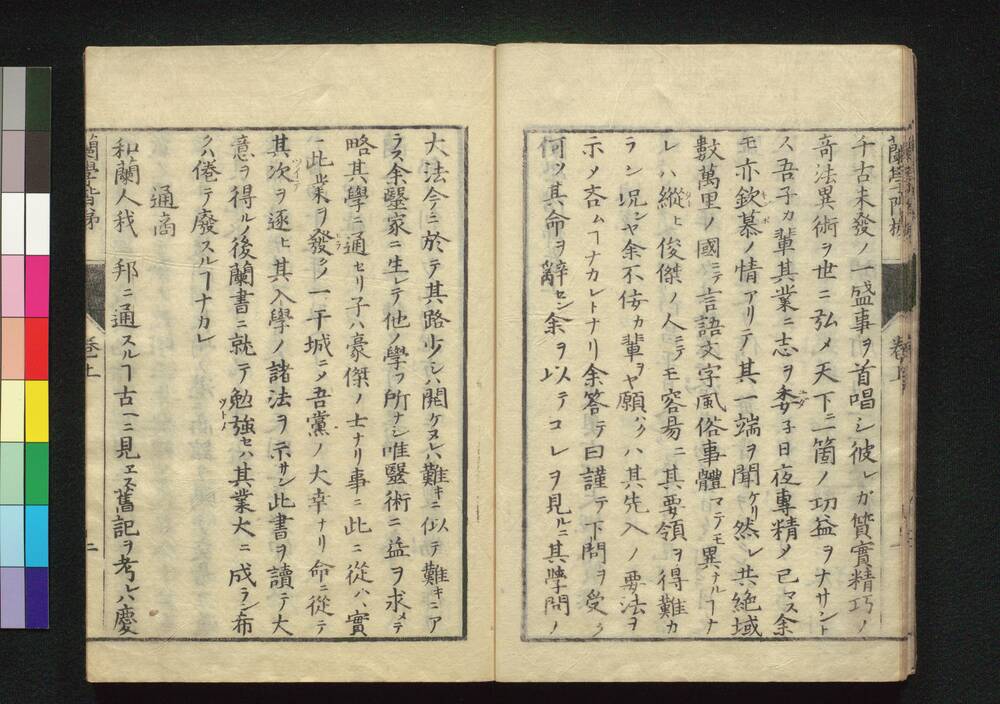 蘭學階梯 卷上
千古未發ノ一盛事ヲ首唱シ彼レガ質實精巧ノ
奇法異術ヲ世ニ弘メ天下ニ一箇ノ功益ヲナサント
ス吾子カ輩其業ニ志ヲ委子日夜專精メ已マス余
モ亦欽慕ノ情アリテ其一端ヲ聞ケリ然レ共絶域
數萬里ノ國ニテ言語文字風俗事體マテモ異ナルヿナ
レハ縱ヒ俊傑ノ人ニテモ容昜ニ其要領ヲ得難カ
ラン况ンヤ余不佞カ輩ヲヤ願ハクハ其先入ノ要法ヲ
示メ吝ムヿナカレトナリ余答テ曰謹テ下問ヲ受ク
何ソ其命ヲ辭セン余ヲ以テコレヲ見ルニ其學問ノ
大法今ニ於テ其路少シハ開ケヌレハ難キニ似テ難キニア
ラス余毉家ニ生レテ他ノ學フ所ナシ唯毉術ニ益ヲ求メテ
略其學ニ通セリ子ハ豪傑ノ士ナリ事ニ此ニ從ハヽ實
ニ此業ヲ發クノ一干城ニメ吾黨ノ大幸ナリ命ニ從テ
其次ヲ逐ヒ其入學ノ諸法ヲ示サン此書ヲ讀テ大
意ヲ得ルノ後蘭書ニ就テ勉強セハ其業大ニ成ラン布
クハ倦テ廢スルヿナカレ
通商
和蘭人我 邦ニ通スルヿ古ヘニ見エス舊記ヲ考ルハ慶
蘭學階梯 卷上 二